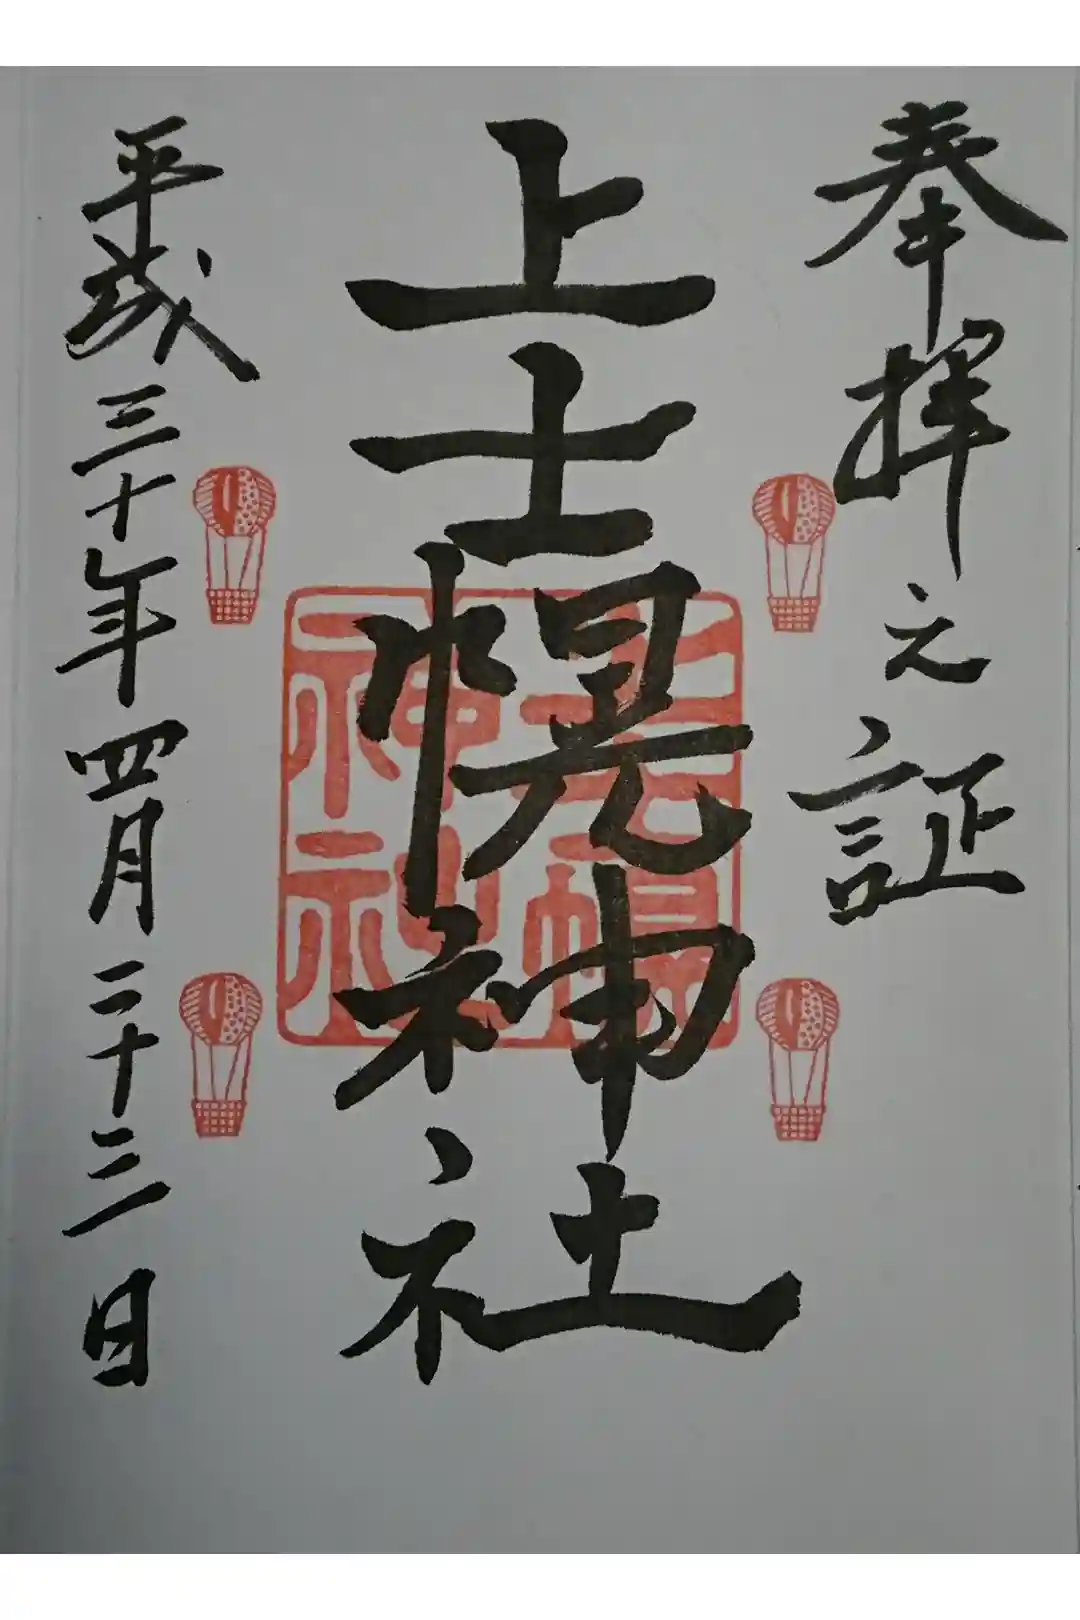 奉拝之証
上士幌神社
上士幌神社
平成三十年四月二十三日